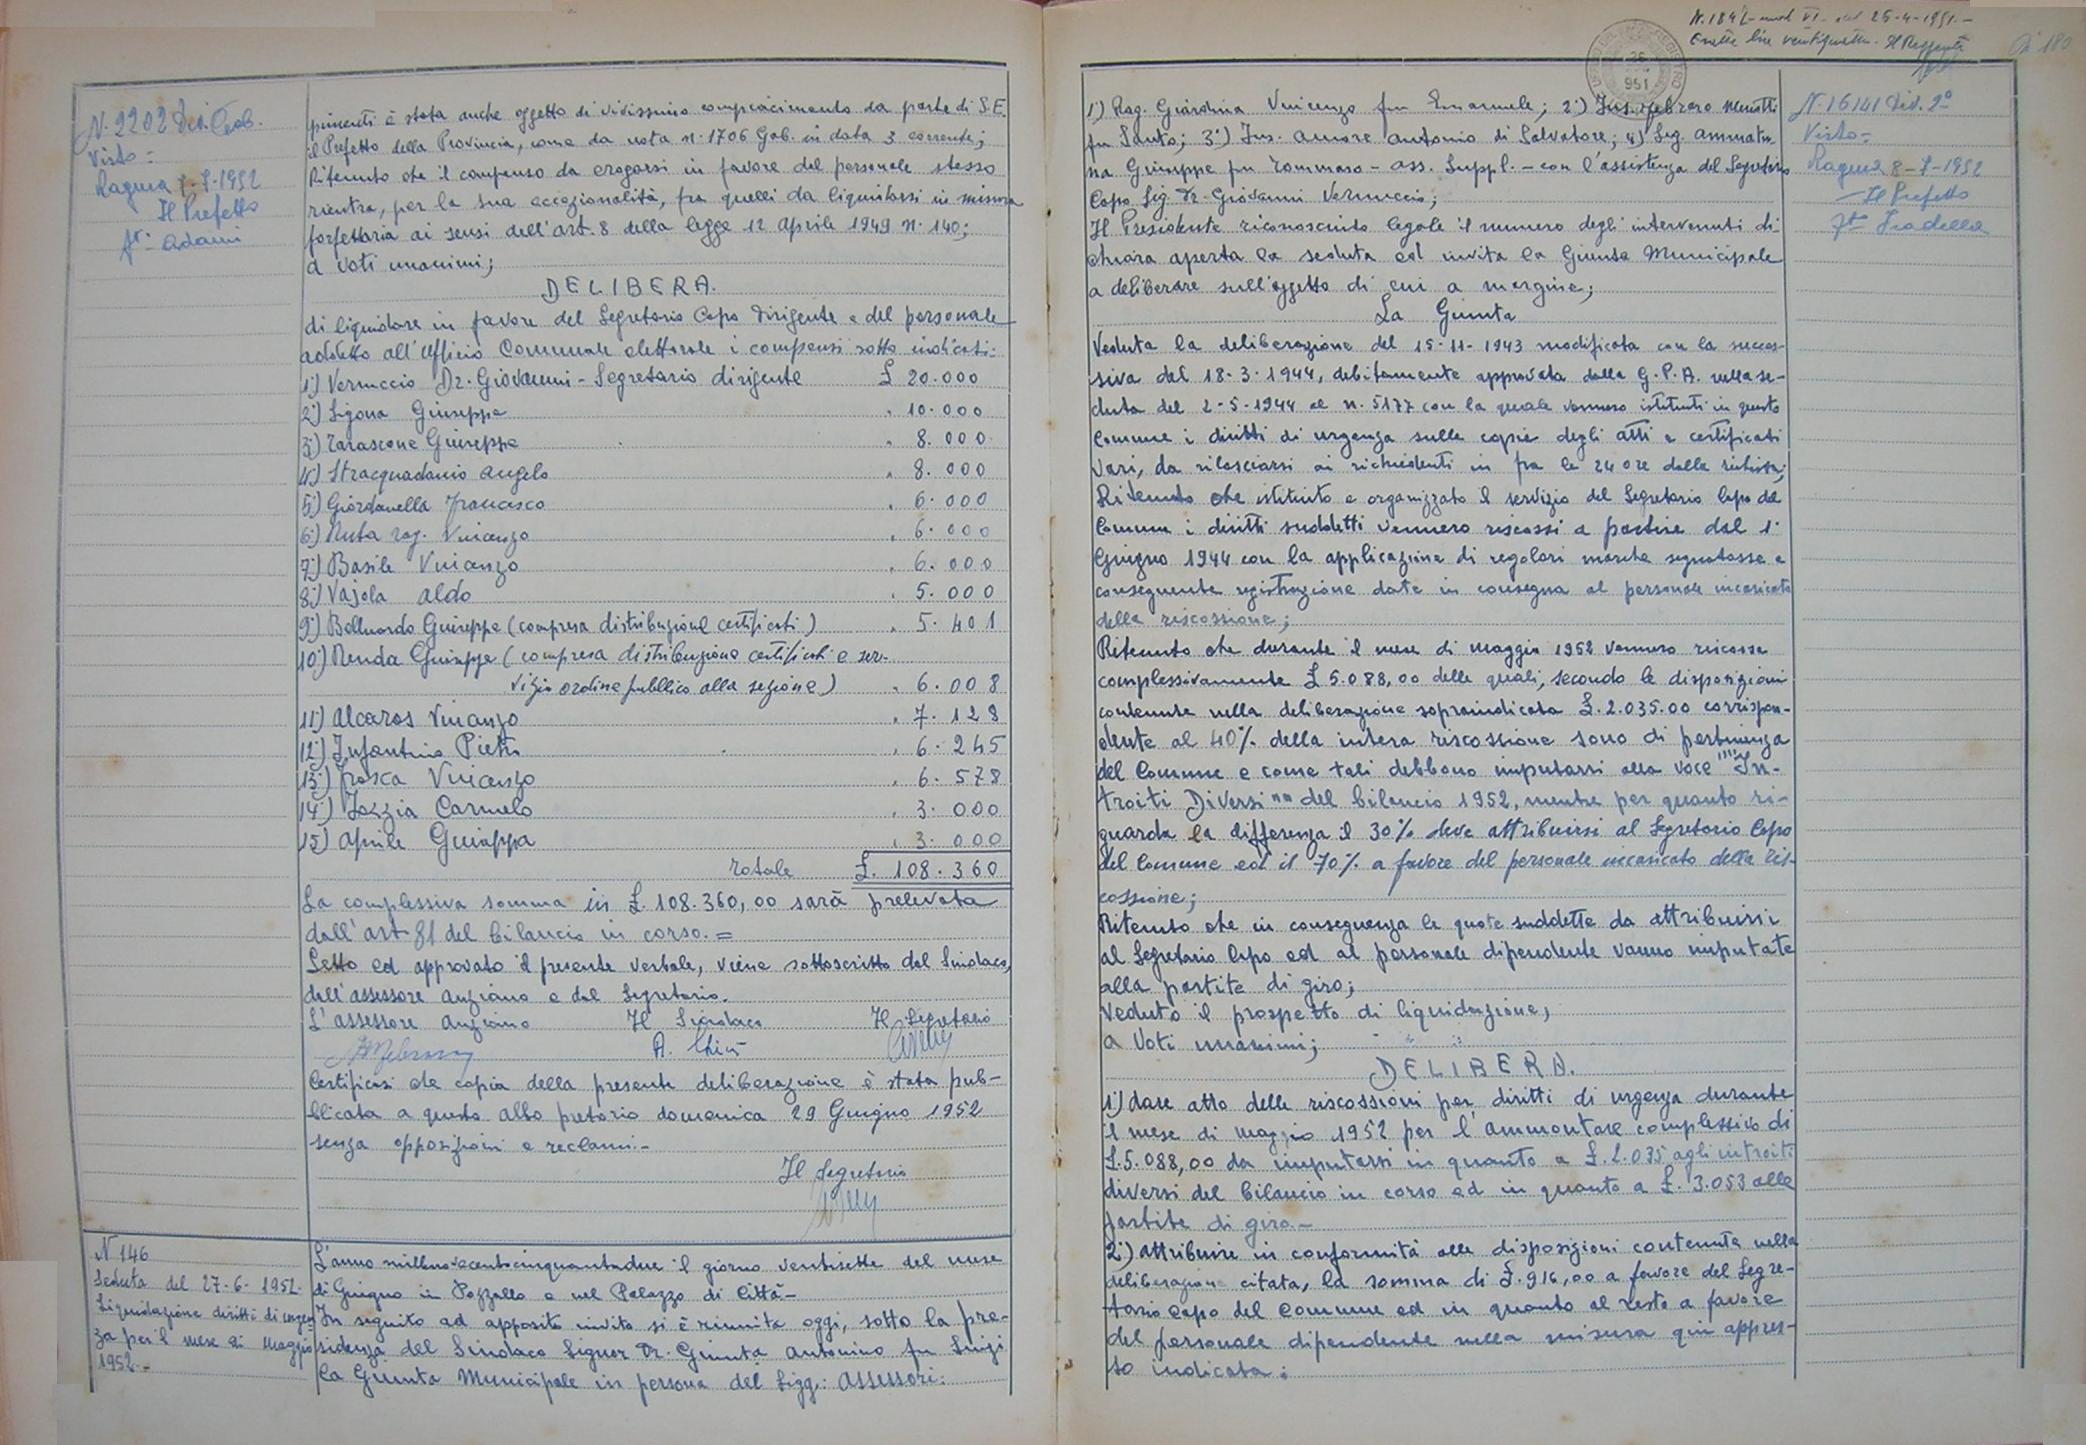 N. 2202 Div. Gab.
Visto =
Ragusa 7-7-1952
Il Prefetto
Ft: Adami
pimenti è stata anche oggetto di vivissimo compiacimento da parte di S.E.
il Prefetto della Provincia, come da nota n. 1706 Gab. in data 3 corrente;
Ritenuto che il compenso da erogarsi in favore del personale stesso
rientra, per la sua eccezionalità, fra quelli da liquidarsi in misura
forfettaria ai sensi dell'art. 8 della legge 12 Aprile 1949 n. 140;
a voti unanimi;
DELIBERA.
di liquidare in favore del Segretario Capo Dirigente e del personale
addetto all'Ufficio Comunale elettorale i compensi sotto indicati:
1°) Vernuccio Dr. Giovanni - Segretario dirigente £ 20.000
2°) Sigona Giuseppe " 10.000
3°) Tarascone Giuseppe " 8.000
4°) Stracquadanio Angelo " 8.000
5°) Giordanella Francesco " 6.000
6°) Nuta rag. Vincenzo " 6.000
7°) Basile Vincenzo " 6.000
8°) Vajola Aldo " 5.000
9°) Belluardo Giuseppe (compresa distribuzione certificati) " 5.401
10°) Renda Giuseppe (compresa distribuzione certificati e ser-
vizio ordine pubblico alla sezione) " 6.008
11°) Alcaros Vincenzo " 7.128
12°) Infantino Pietro " 6.245
13°) Frasca Vincenzo " 6.578
14°) Iozzia Carmelo " 3.000
15°) Aprile Giuseppa " 3.000
Totale £. 108.360
La complessiva somma in £. 108.360,00 sarà prelevata
dall'art. 81 del bilancio in corso. =
Letto ed approvato il presente verbale, viene sottoscritto dal Sindaco,
dall'assessore anziano e dal Segretario.
L'assessore anziano Il Sindaco Il Segretario
Certificasi che copia della presente deliberazione è stata pub-
blicata a questo albo pretorio domenica 29 Giugno 1952
senza opposizioni e reclami. -
Il Segretario
N 146
Seduta del 27-6-1952.
Liquidazione diritti di urgen-
za per il mese di Maggio
1952. -
L'anno millenovecentocinquantadue il giorno ventisette del mese
di Giugno in Pozzallo e nel Palazzo di Città -
In seguito ad apposito invito si è riunita oggi, sotto la pre-
sidenza del Sindaco Signor Dr. Giunta Antonino fu Luigi
la Giunta Municipale in persona dei Sigg.: Assessori:
25-4-1951. -
951
180
1°) Rag. Giardina Vincenzo fu Emanuele; 2°) Ins. Febraro Menotti
fu Santo; 3°) Ins. Amore Antonio di Salvatore; 4) Sig. Ammatu-
na Giuseppe fu Tommaso - Ass. Suppl. - con l'assistenza del Segretario
Capo Sig. Dr. Giovanni Vernuccio;
Il Presidente riconosciuto legale il numero degli intervenuti di-
chiara aperta la seduta ed invita la Giunta Municipale
a deliberare sull'oggetto di cui a margine;
La Giunta
Veduta la deliberazione del 15-11-1943 modificata con la succes-
siva del 18-3-1944, debitamente approvata dalla G.P.A. nella se-
duta del 2-5-1944 al n. 5177 con la quale vennero istituiti in questo
Comune i diritti di urgenza sulle copie degli atti e certificati
vari, da rilasciarsi ai richiedenti in fra le 24 ore dalla richiesta;
Ritenuto che istituito e organizzato il servizio dal Segretario Capo del
Comune i diritti suddetti vennero riscossi a partire dal 1°
Giugno 1944 con la applicazione di regolari marche segnatasse e
conseguente registrazione date in consegna al personale incaricato
della riscossione;
Ritenuto che durante il mese di maggio 1952 vennero riscosse
complessivamente £ 5.088,00 delle quali, secondo le disposizioni
contenute nella deliberazione sopraindicata £. 2.035.00 corrispon-
dente al 40% della intera riscossione sono di pertinenza
del Comune e come tali debbono imputarsi alla voce "" In-
troiti Diversi "" del bilancio 1952, mentre per quanto ri-
guarda la differenza il 30% deve attribuirsi al Segretario Capo
del Comune ed il 70% a favore del personale incaricato della ris-
cossione;
Ritenuto che in conseguenza le quote suddette da attribuirsi
al Segretario Capo ed al personale dipendente vanno imputate
alla partite di giro;
Veduto il prospetto di liquidazione;
a Voti unanimi;
DELIBERA.
1°) dare atto delle riscossioni per diritti di urgenza durante
il mese di maggio 1952 per l'ammontare complessivo di
£. 5.088,00 da imputarsi in quanto a £. 2.035 agli introiti
diversi del bilancio in corso ed in quanto a £. 3.053 alle
partite di giro. -
2°) attribuire in conformità alle disposizioni contenute nella
deliberazione citata, la somma di £. 916,00 a favore del Segre-
tario Capo del Comune ed in quanto al resto a favore
del personale dipendente nella misura qui appres-
so indicata:
N. 16141 Div. 2°
Visto =
Ragusa 8-7-1952
Il Prefetto